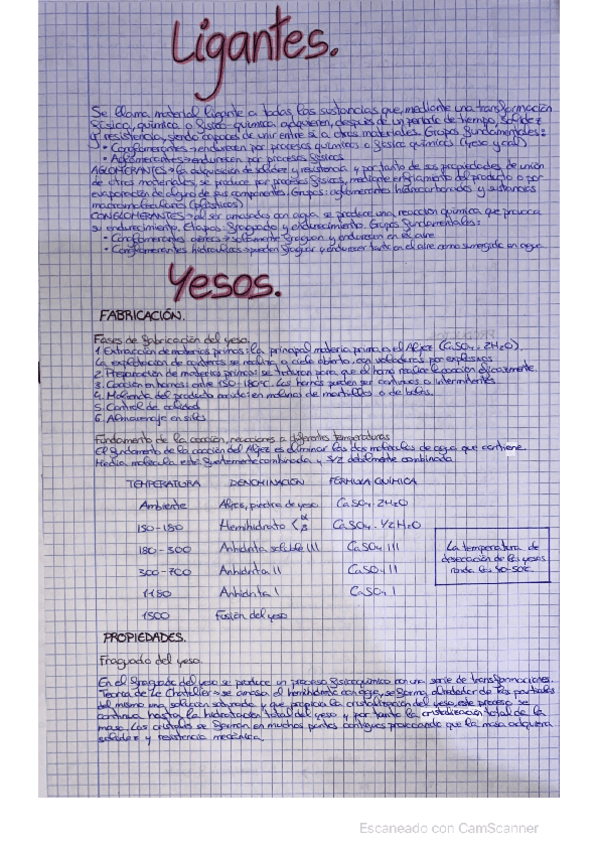 Ligantes.
Se llama material ligante a todas las sustancias que, mediante una transformación
física, química o físico-química adquieren, después de un periodo de tiempo, solidez
y resistencia, siendo capaces de unir entre sí a otros materiales. Grupos fundamentales:
• Conglomerantes → endurecen por procesos químicos o físico químicos (yeso y cal)
• Aglomerantes → endurecen por procesos físicos
AGLOMERANTES → la adquisición de solidez y resistencia y por tanto de sus propiedades de unión
de otros materiales, se produce por procesos físicos, mediante enfriamiento del producto o por
evaporación de alguno de sus componentes. Grupos: aglomerantes hidrocarbonados y sustancias
macromoleculares (plásticos)
CONGLOMERANTES → al ser amasados con agua se produce una reacción química que provoca
su endurecimiento. Etapas: fraguado y endurecimiento. Grupos fundamentales:
• Conglomerantes aéreos → solamente fraguan y endurecen en el aire
• Conglomerantes hidráulicos → pueden fraguar y endurecer tanto en el aire como sumergido en agua
Yesos.
FABRICACIÓN.
Fases de fabricación del yeso.
1. Extracción de materias primas: la principal materia prima es el Aljez (CaSO4 · 2H2O).
La explotación de canteras se realiza a cielo abierto, con voladuras por explosivos
2. Preparación de materias primas: se trituran para que el horno realice la cocción eficazmente.
3. Cocción en hornos: entre 150-180°C. Los hornos pueden ser continuos o intermitentes
4. Molienda del producto cocido: en molinos de martillos o de bolas.
5. Control de calidad
6. Almacenaje en silos
Fundamento de la cocción, reacciones a diferentes temperaturas
El fundamento de la cocción del Aljez es eliminar las dos moléculas de agua que contiene.
Media molécula está fuertemente combinada y 3/2 débilmente combinada
TEMPERATURA DENOMINACIÓN FÓRMULA QUÍMICA
Ambiente Aljez, piedra de yeso CaSO4 · 2H2O
150-180 Hemihidrato < α β CaSO4 · 1/2H2O
180-300 Anhidrita soluble III CaSO4 III
300-700 Anhidrita II CaSO4 II
1180 Anhidrita I CaSO4 I
1500 Fusión del yeso
La temperatura de
desecación de los yesos
ronda los 40-50°C.
PROPIEDADES.
Fraguado del yeso.
En el fraguado del yeso se produce un proceso fisicoquímico con una serie de transformaciones.
Teoría de Le Chatelier → se amasa el hemihidrato con agua, se forma alrededor de las partículas
del mismo una solución saturada y que propicia la cristalización del yeso, este proceso se
continua hasta la hidratación total del yeso y por tanto la cristalización total de la
masa. Los cristales se forman en muchos puntos contiguos provocando que la masa adquiera
solidez y resistencia mecánica.
Escaneado con CamScanner